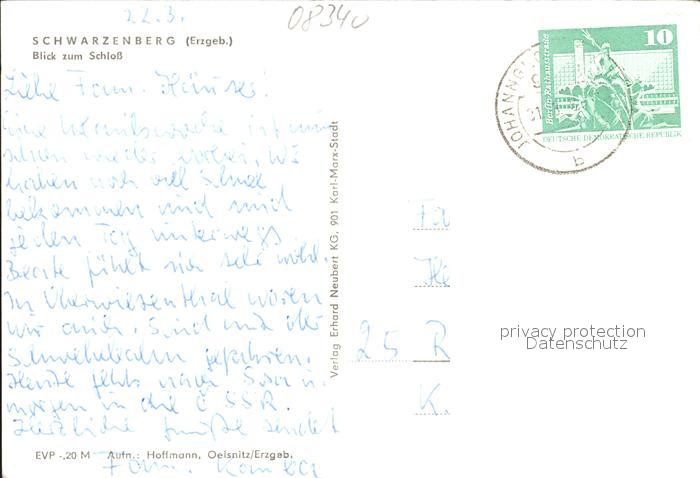 22.3.
08340
SCHWARZENBERG (Erzgeb.)
Blick zum Schloß
Liebe Fam. Häuser!
Eine Urlaubswoche ist nun
schon wieder vorbei. Wir
haben noch viel Schnee
bekommen und sind
jeden Tag unterwegs
Beate fühlt sich sehr wohl.
In Oberwiesenthal waren
wir auch. Sind mit der
Schwebebahn gefahren.
Heute geht's nach
morgen in die ČSSR.
Herzliche Grüße sendet
Fam.
EVP -,20 M Aufn.: Hoffmann, Oelsnitz/Erzgeb.
Verlag Erhard Neubert KG, 901 Karl-Marx-Stadt
10
Berlin-Rathausstraße
DEUTSCHE DEMOKRATISCHE REPUBLIK
JOHANNG
b
Fa
He
25 R
K.
privacy protection
Datenschutz